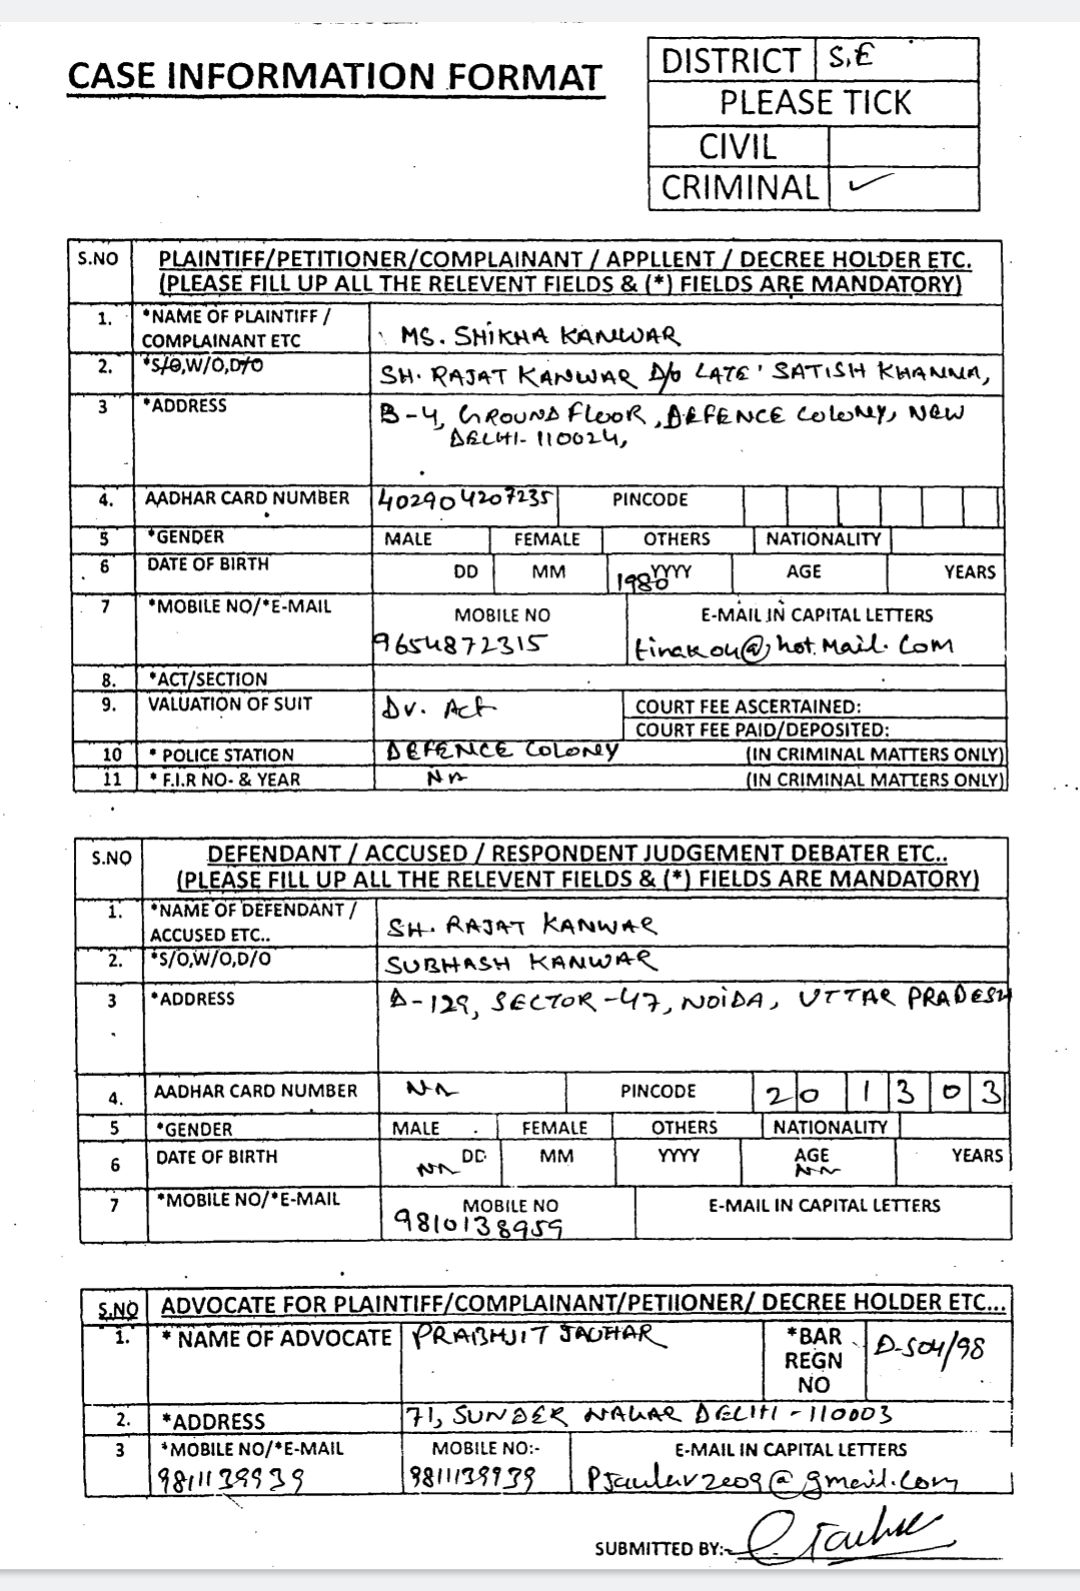 CASE INFORMATION FORMAT
DISTRICT S.E
PLEASE TICK
CIVIL
CRIMINAL ✓
S.NO PLAINTIFF/PETITIONER/COMPLAINANT / APPLLENT / DECREE HOLDER ETC.
(PLEASE FILL UP ALL THE RELEVENT FIELDS & (*) FIELDS ARE MANDATORY)
1. *NAME OF PLAINTIFF /
COMPLAINANT ETC MS. SHIKHA KANWAR
2. *S/O,W/O,D/O SH. RAJAT KANWAR D/o LATE' SATISH KHANNA,
3 *ADDRESS B-4, GROUND FLOOR, DEFENCE COLONY, NEW
DELHI-110024,
4. AADHAR CARD NUMBER 402904207235 PINCODE
5 *GENDER MALE FEMALE OTHERS NATIONALITY
6 DATE OF BIRTH DD MM YYYY 1980 AGE YEARS
7 *MOBILE NO/*E-MAIL MOBILE NO E-MAIL IN CAPITAL LETTERS
9654872315 @hot.Mail.Com
8. *ACT/SECTION
9. VALUATION OF SUIT DV. Act COURT FEE ASCERTAINED:
COURT FEE PAID/DEPOSITED:
10 * POLICE STATION DEFENCE COLONY (IN CRIMINAL MATTERS ONLY)
11 * F.I.R NO- & YEAR NA (IN CRIMINAL MATTERS ONLY)
S.NO DEFENDANT / ACCUSED / RESPONDENT JUDGEMENT DEBATER ETC..
(PLEASE FILL UP ALL THE RELEVENT FIELDS & (*) FIELDS ARE MANDATORY)
1. *NAME OF DEFENDANT /
ACCUSED ETC.. SH. RAJAT KANWAR
2. *S/O,W/O,D/O SUBHASH KANWAR
3 *ADDRESS D-129, SECTOR-47, NOIDA, UTTAR PRADESH
4. AADHAR CARD NUMBER NA PINCODE 2 0 1 3 0 3
5 *GENDER MALE FEMALE OTHERS NATIONALITY
6 DATE OF BIRTH NA DD MM YYYY AGE NA YEARS
7 *MOBILE NO/*E-MAIL MOBILE NO E-MAIL IN CAPITAL LETTERS
9810138959
S.NO ADVOCATE FOR PLAINTIFF/COMPLAINANT/PETIIONER/ DECREE HOLDER ETC...
1. * NAME OF ADVOCATE PRABHJIT JAUHAR *BAR
REGN
NO D-504/98
2. *ADDRESS 71, SUNDER NAGAR DELHI-110003
3 *MOBILE NO/*E-MAIL MOBILE NO:- E-MAIL IN CAPITAL LETTERS
9811139939 9811139939 Pjauhar2009@gmail.com
SUBMITTED BY:-